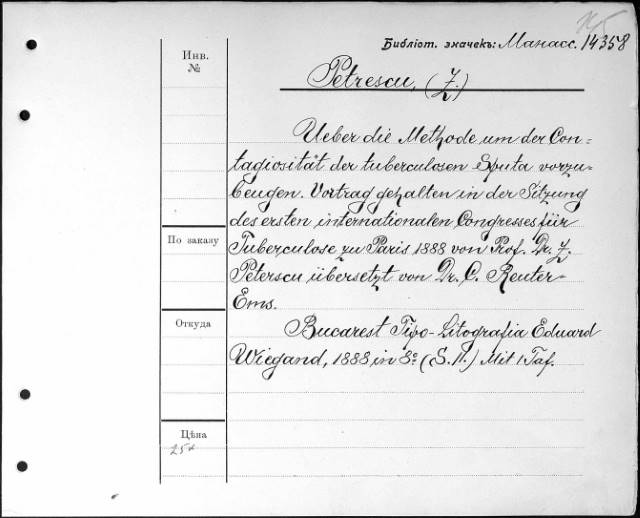 Библіот. значекъ: Манасс. 14358
Инв.
№
Petrescu, (Z.)
Ueber die Methode um der Con=
tagiosität der tuberculosen Sputa vorzu-
beugen. Vortrag gehalten in der Sitzung
des ersten internationalen Congresses für
По заказу
Tuberculose zu Paris 1888 von Prof. Dr. Z.
Peterscu übersetzt von Dr. C. Reuter-
Ems.
Откуда
Bucarest Tipo-Litografia Eduard
Wiegand, 1888, in 8º (S. 11.) Mit 1 Taf.
Цѣна